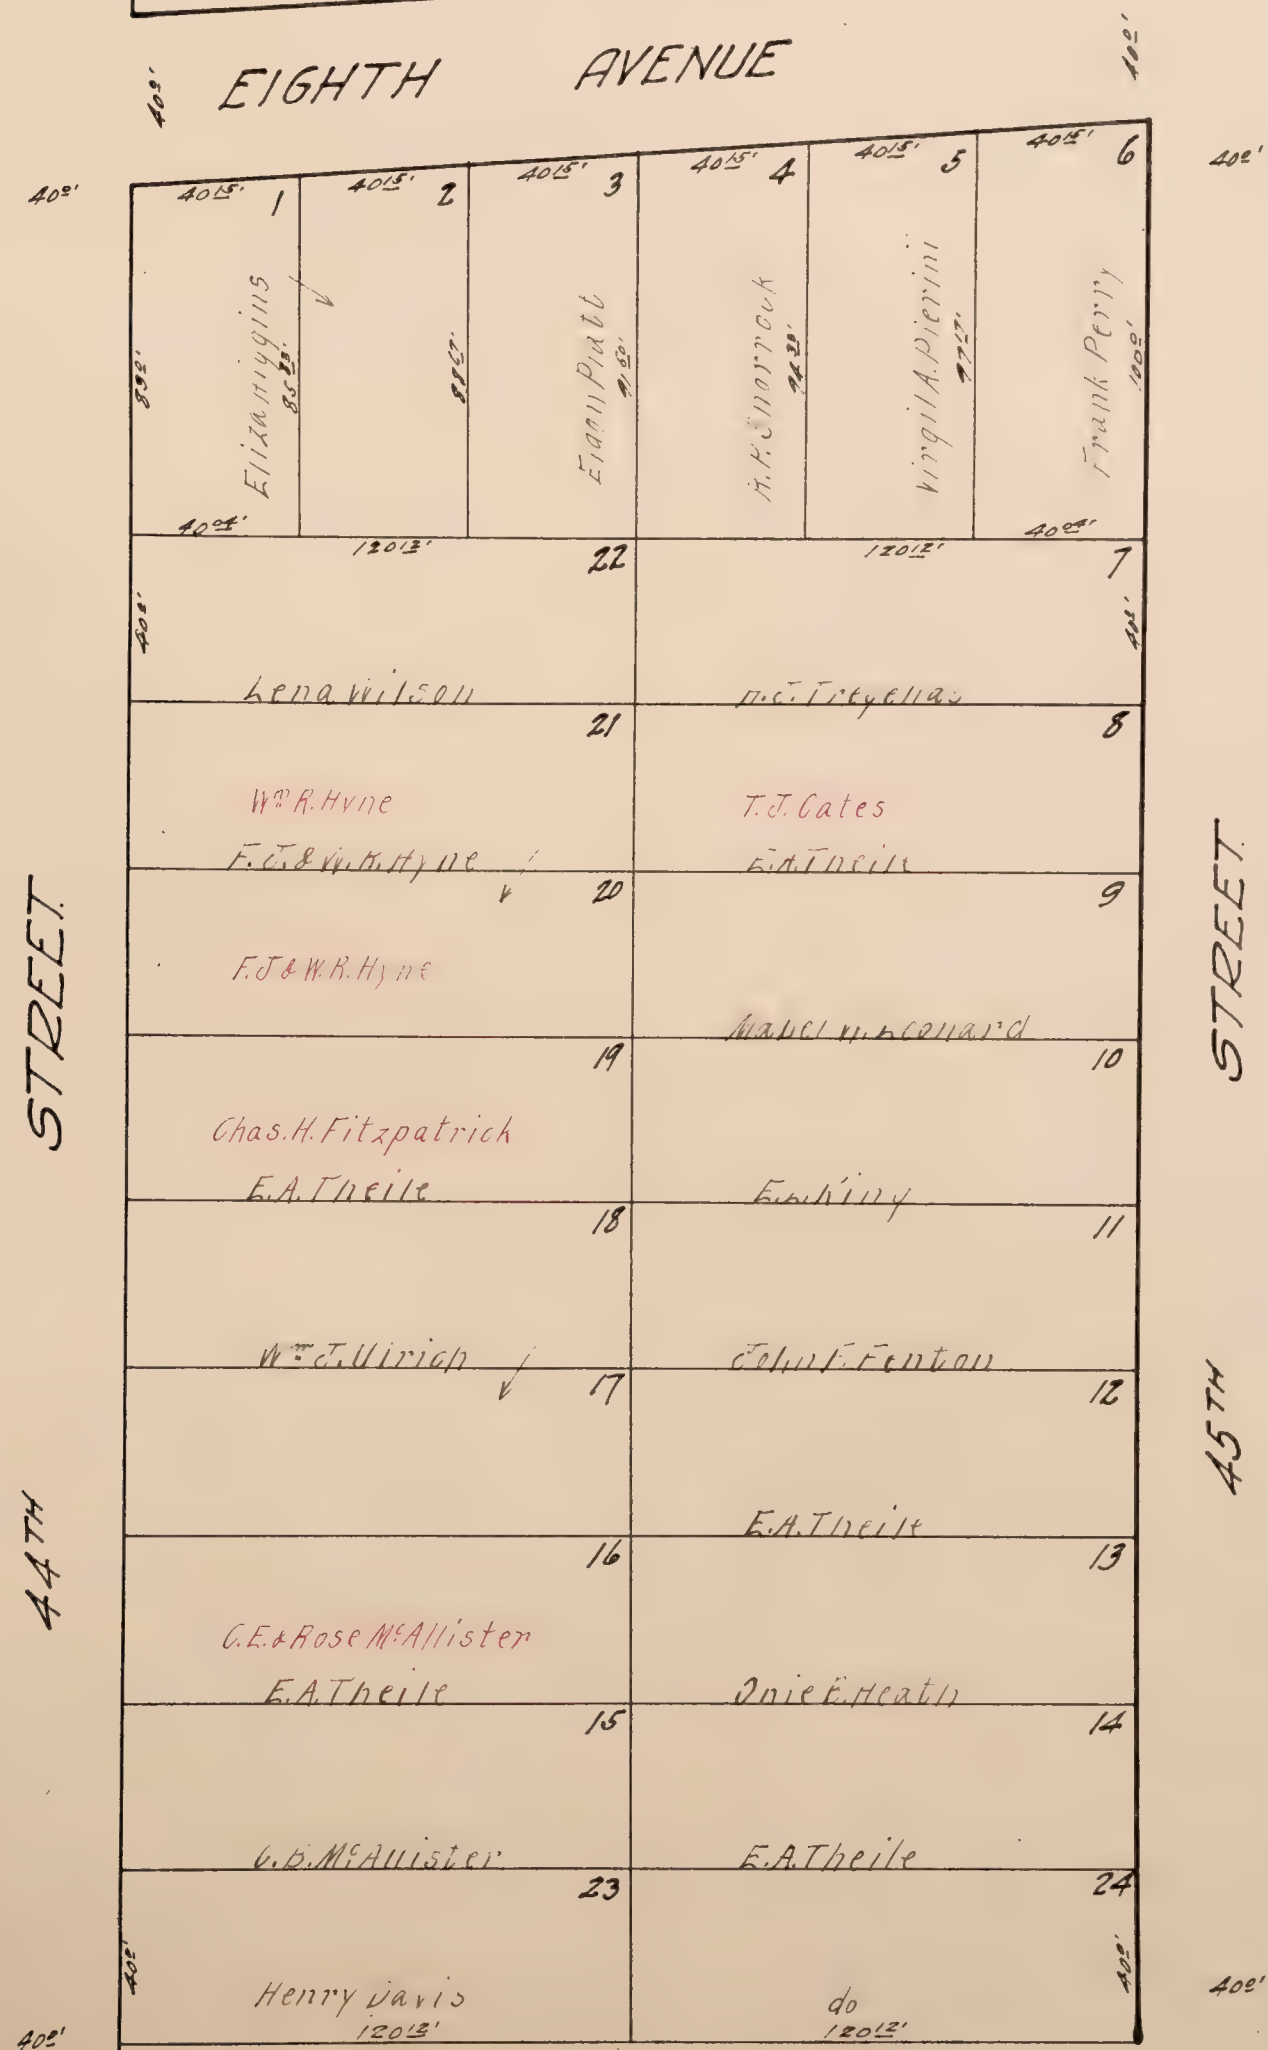 EIGHTH AVENUE
40º'
40º'
40º'
40º'
40 15'
1
40 15'
2
40 15'
3
40 15'
4
40 15'
5
40 15'
6
83º'
Eliza Higgins
85 83'
88 67'
Platt
91 50'
94 33'
Virgil A. Pierini
97 17'
Frank Perry
100º'
40 04'
40 04'
120 12'
22
120 12'
7
40º'
40º'
Lena Wilson
21
8
Wm R. Hyne
T.J. Cates
F.J. & W.R. Hyne
E.A. Theile
20
9
F.J & W.R. Hyne
Mabel Leonard
19
10
Chas. H. Fitzpatrick
E.A. Theile
E.L. King
18
11
Wm J. Ulrich
John F. Fenton
17
12
E.A. Theile
16
13
C.E. & Rose McAllister
E.A. Theile
Onie E. Heath
15
14
McAllister
E.A. Theile
23
24
40º'
40º'
Henry Davis
do
120 12'
120 12'
40º'
40º'
44TH STREET.
45TH STREET.